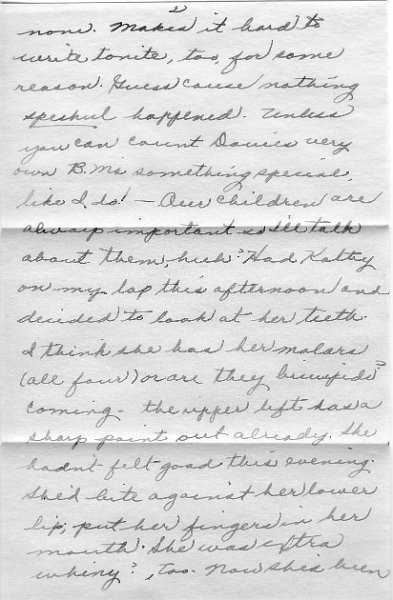 2
none. Makes it hard to
write tonite, too, for some
reason. Guess 'cause nothing
speshul happened. Unless
you can count Davies very
own B.Ms something special,
like I do! — Our children are
always important so I'll talk
about them, huh? Had Kathy
on my lap this afternoon and
decided to look at her teeth.
I think she has her molars
(all four) or are they bicuspids?
coming - the upper left has a
sharp point out already. She
hadn't felt good this evening.
She'd bite against her lower
lip, put her fingers in her
mouth. She was extra
whiny?, too. Now she's been